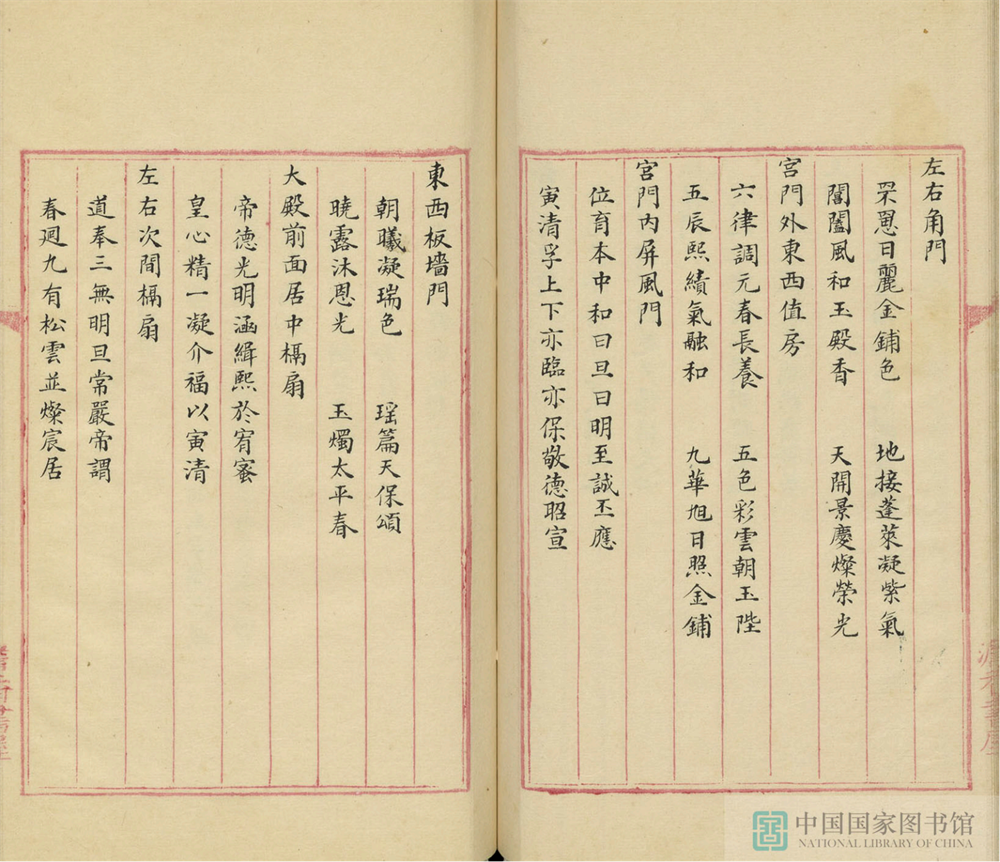 左右角門
罘罳日麗金鋪色　地接蓬萊凝紫氣
閶闔風和玉殿香　天開景慶燦榮光
宮門外東西值房
六律調元春長養　五色彩雲朝玉陛
五辰熙績氣融和　九華旭日照金鋪
宮門內屏風門
位育本中和曰旦曰明至誠丕應
寅清孚上下亦臨亦保敬德昭宣
東西板墻門
朝曦凝瑞色　瑶篇天保頌
曉露沐恩光　玉燭太平春
大殿前面居中槅扇
帝德光明涵緝熙於宥蜜
皇心精一凝介福以寅清
左右次間槅扇
道奉三無明旦常嚴帝謂
春廻九有松雲並燦宸居
中国国家图书馆
NATIONAL LIBRARY OF CHINA